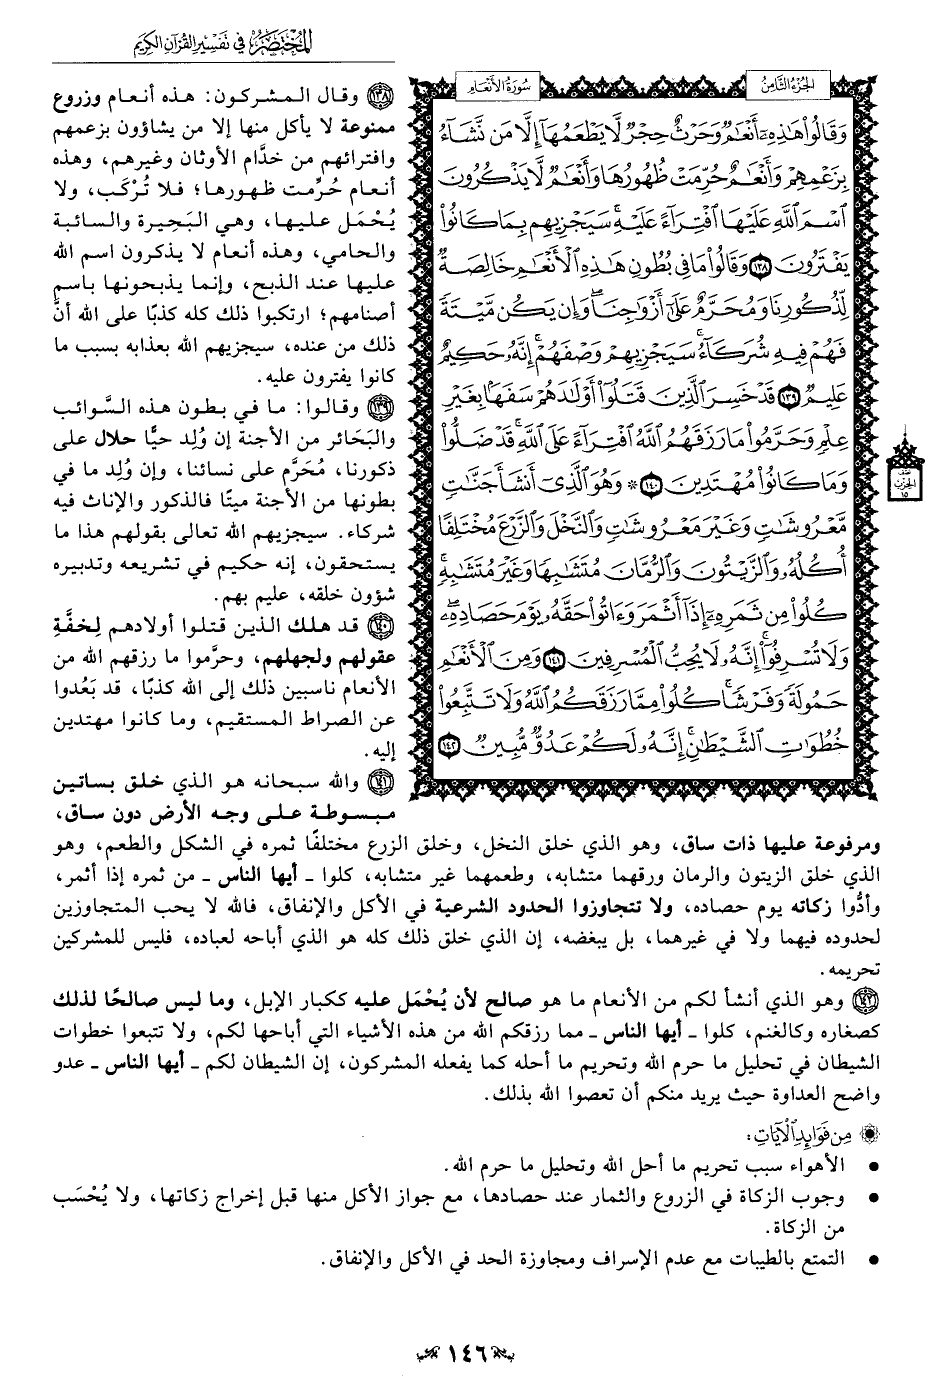 المختصر في تفسير القرآن الكريم
الجزء الثامن
سورة الأنعام
وَقَالُوا۟ هَٰذِهِۦٓ أَنْعَٰمٌ وَحَرْثٌ حِجْرٌ لَّا يَطْعَمُهَآ إِلَّا مَن نَّشَآءُ
بِزَعْمِهِمْ وَأَنْعَٰمٌ حُرِّمَتْ ظُهُورُهَا وَأَنْعَٰمٌ لَّا يَذْكُرُونَ
ٱسْمَ ٱللَّهِ عَلَيْهَا ٱفْتِرَآءً عَلَيْهِ ۚ سَيَجْزِيهِم بِمَا كَانُوا۟
يَفْتَرُونَ ١٣٨ وَقَالُوا۟ مَا فِى بُطُونِ هَٰذِهِ ٱلْأَنْعَٰمِ خَالِصَةٌ
لِّذُكُورِنَا وَمُحَرَّمٌ عَلَىٰٓ أَزْوَٰجِنَا ۖ وَإِن يَكُن مَّيْتَةً
فَهُمْ فِيهِ شُرَكَآءُ ۚ سَيَجْزِيهِمْ وَصْفَهُمْ ۚ إِنَّهُۥ حَكِيمٌ
عَلِيمٌ ١٣٩ قَدْ خَسِرَ ٱلَّذِينَ قَتَلُوٓا۟ أَوْلَٰدَهُمْ سَفَهًۢا بِغَيْرِ
عِلْمٍ وَحَرَّمُوا۟ مَا رَزَقَهُمُ ٱللَّهُ ٱفْتِرَآءً عَلَى ٱللَّهِ ۚ قَدْ ضَلُّوا۟
وَمَا كَانُوا۟ مُهْتَدِينَ ١٤٠ ۞ وَهُوَ ٱلَّذِىٓ أَنشَأَ جَنَّٰتٍ
مَّعْرُوشَٰتٍ وَغَيْرَ مَعْرُوشَٰتٍ وَٱلنَّخْلَ وَٱلزَّرْعَ مُخْتَلِفًا
أُكُلُهُۥ وَٱلزَّيْتُونَ وَٱلرُّمَّانَ مُتَشَٰبِهًا وَغَيْرَ مُتَشَٰبِهٍ ۚ
كُلُوا۟ مِن ثَمَرِهِۦٓ إِذَآ أَثْمَرَ وَءَاتُوا۟ حَقَّهُۥ يَوْمَ حَصَادِهِۦ ۖ
وَلَا تُسْرِفُوٓا۟ ۚ إِنَّهُۥ لَا يُحِبُّ ٱلْمُسْرِفِينَ ١٤١ وَمِنَ ٱلْأَنْعَٰمِ
حَمُولَةً وَفَرْشًا ۚ كُلُوا۟ مِمَّا رَزَقَكُمُ ٱللَّهُ وَلَا تَتَّبِعُوا۟
خُطُوَٰتِ ٱلشَّيْطَٰنِ ۚ إِنَّهُۥ لَكُمْ عَدُوٌّ مُّبِينٌ ١٤٢
نصف
الحزب
١٥
١٣٨ وقال المشركون: هذه أنعام وزروع
ممنوعة لا يأكل منها إلا من يشاؤون بزعمهم
وافترائهم من خدَّام الأوثان وغيرهم، وهذه
أنعام حُرِّمت ظهورها؛ فلا تُرْكَب، ولا
يُحْمَل عليها، وهي البَحِيرة والسائبة
والحامي، وهذه أنعام لا يذكرون اسم الله
عليها عند الذبح، وإنما يذبحونها باسم
أصنامهم؛ ارتكبوا ذلك كله كذبًا على الله أنَّ
ذلك من عنده، سيجزيهم الله بعذابه بسبب ما
كانوا يفترون عليه.
١٣٩ وقالوا: ما في بطون هذه السَّوائب
والبَحَائر من الأجنة إن وُلِد حيًّا حلال على
ذكورنا، مُحَرَّم على نسائنا، وإن وُلِد ما في
بطونها من الأجنة ميتًا فالذكور والإناث فيه
شركاء. سيجزيهم الله تعالى بقولهم هذا ما
يستحقون، إنه حكيم في تشريعه وتدبيره
شؤون خلقه، عليم بهم.
١٤٠ قد هلك الذين قتلوا أولادهم لِخفَّةِ
عقولهم ولجهلهم، وحرَّموا ما رزقهم الله من
الأنعام ناسبين ذلك إلى الله كذبًا، قد بَعُدوا
عن الصراط المستقيم، وما كانوا مهتدين
إليه.
١٤١ والله سبحانه هو الذي خلق بساتين
مبسوطة على وجه الأرض دون ساق،
ومرفوعة عليها ذات ساق، وهو الذي خلق النخل، وخلق الزرع مختلفًا ثمره في الشكل والطعم، وهو
الذي خلق الزيتون والرمان ورقهما متشابه، وطعمهما غير متشابه، كلوا ـ أيها الناس ـ من ثمره إذا أثمر،
وأدُّوا زكاته يوم حصاده، ولا تتجاوزوا الحدود الشرعية في الأكل والإنفاق، فالله لا يحب المتجاوزين
لحدوده فيهما ولا في غيرهما، بل يبغضه، إن الذي خلق ذلك كله هو الذي أباحه لعباده، فليس للمشركين
تحريمه.
١٤٢ وهو الذي أنشأ لكم من الأنعام ما هو صالح لأن يُحْمَل عليه ككبار الإبل، وما ليس صالحًا لذلك
كصغاره وكالغنم، كلوا ـ أيها الناس ـ مما رزقكم الله من هذه الأشياء التي أباحها لكم، ولا تتبعوا خطوات
الشيطان في تحليل ما حرم الله وتحريم ما أحله كما يفعله المشركون، إن الشيطان لكم ـ أيها الناس ـ عدو
واضح العداوة حيث يريد منكم أن تعصوا الله بذلك.
من فوائد الآيات:
● الأهواء سبب تحريم ما أحل الله وتحليل ما حرم الله.
● وجوب الزكاة في الزروع والثمار عند حصادها، مع جواز الأكل منها قبل إخراج زكاتها، ولا يُحْسَب
من الزكاة.
● التمتع بالطيبات مع عدم الإسراف ومجاوزة الحد في الأكل والإنفاق.
١٤٦